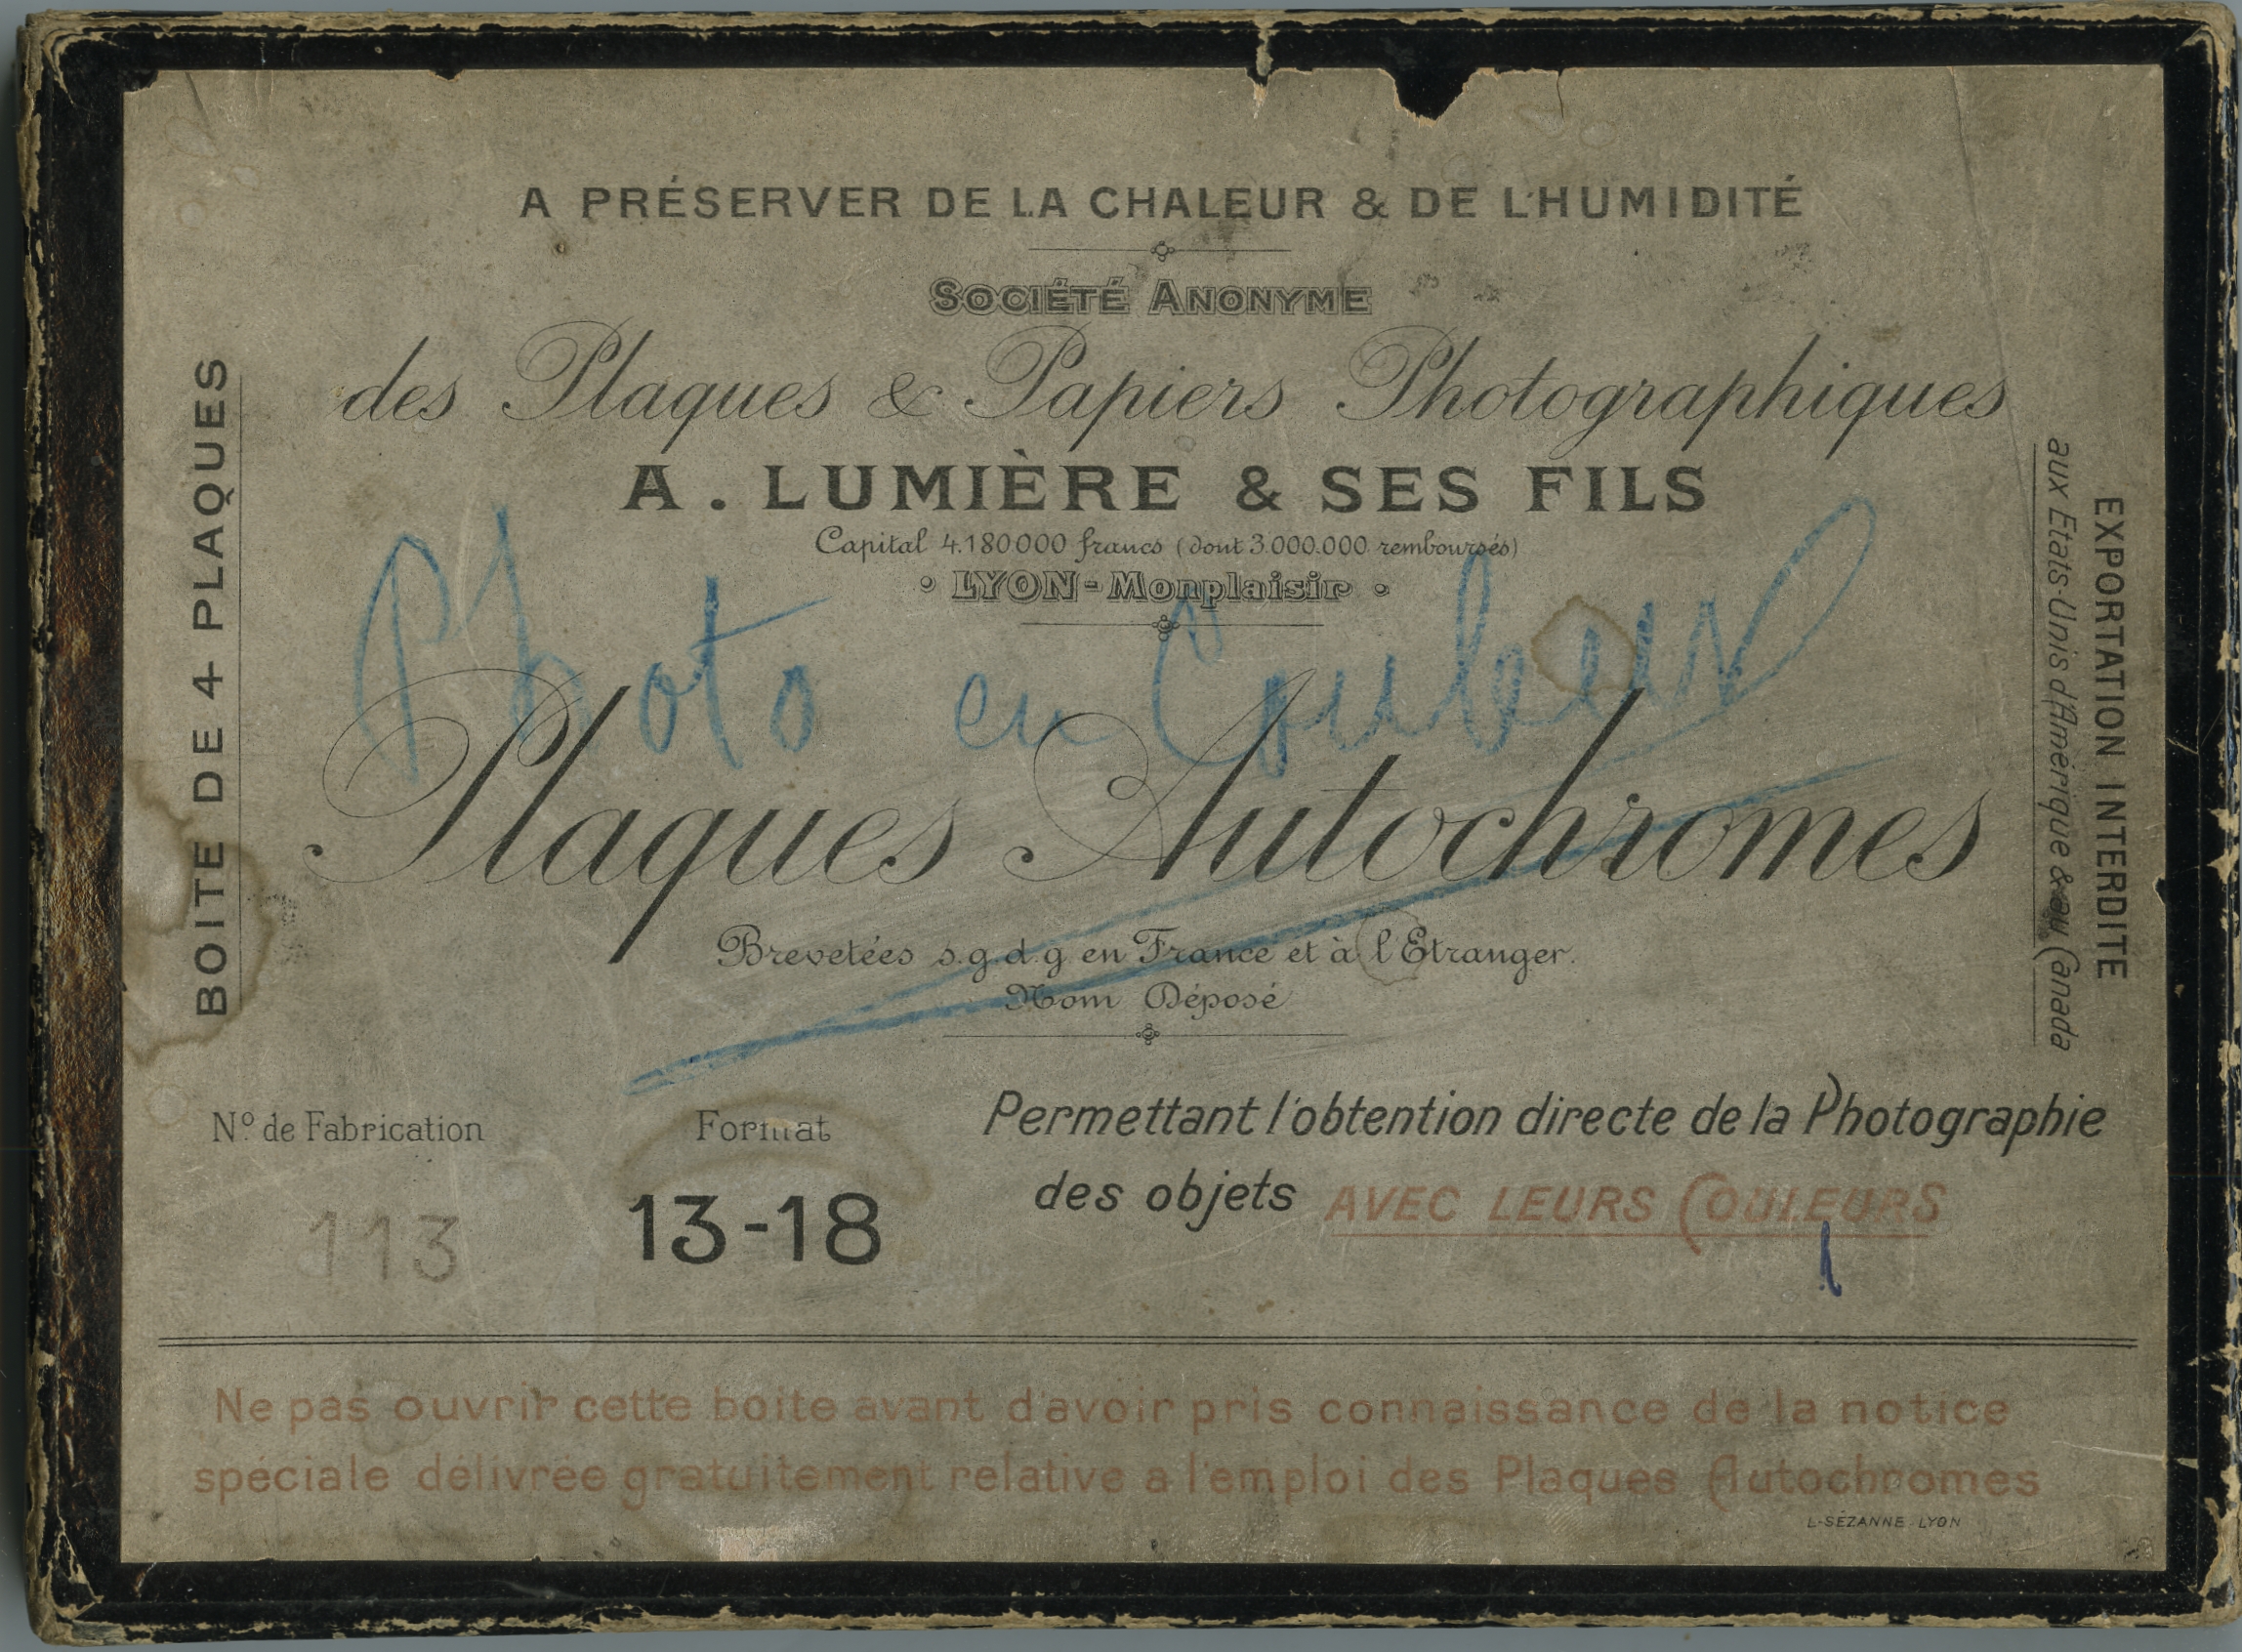 A PRÉSERVER DE LA CHALEUR & DE L'HUMIDITÉ
SOCIÉTÉ ANONYME
des Plaques & Papiers Photographiques
A. LUMIÈRE & SES FILS
Capital 4.180000 francs (dont 3.000.000 remboursés)
LYON-Monplaisir
Photo en Couleurs
Plaques Autochromes
Brevetées s.g.d.g en France et à l'Etranger.
Nom Déposé
BOITE DE 4 PLAQUES
EXPORTATION INTERDITE
aux Etats-Unis d'Amérique & au Canada
No. de Fabrication
113
Format
13-18
Permettant l'obtention directe de la Photographie
des objets AVEC LEURS COULEURS
Ne pas ouvrir cette boite avant d'avoir pris connaissance de la notice
spéciale délivrée gratuitement relative a l'emploi des Plaques Autochromes
L-SÉZANNE LYON